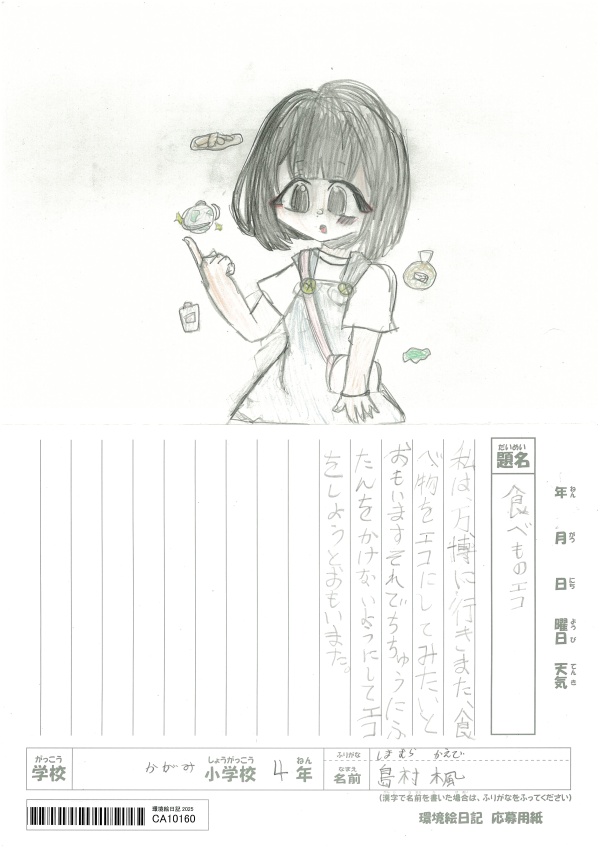 だいめい
題名
食べものエコ
年 ねん
月 がつ
日 にち
曜日 ようび
天気 てんき
私は、万博に行きまた、食
べ物をエコにしてみたいと
おもいますそれでちちゅうにふ
たんをかけないようにしてエコ
をしようとおもいまた。
がっこう
学校
かがみ
しょうがっこう
小学校
4
ねん
年
ふりがな
しまむら かえで
なまえ
名前
島村 楓
(漢字で名前を書いた場合は、ふりがなをふってください)
環境絵日記 2025
CA10160
環境絵日記 応募用紙